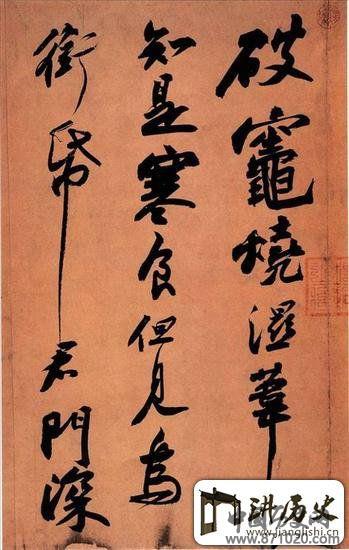 破竈燒溼葦
知是寒食但見烏
銜帋君門深
讲历史
www.jianglishi.cn
www.871020.com